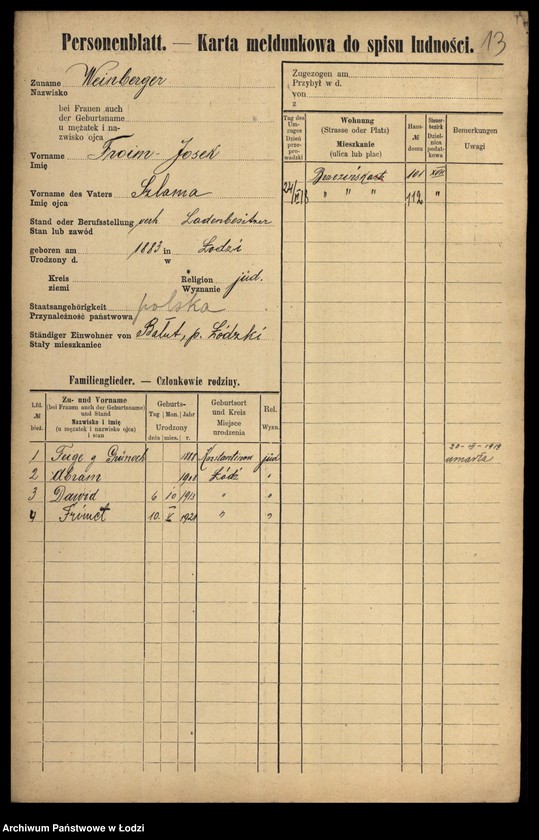 13
Personenblatt. — Karta meldunkowa do spisu ludności.
Zuname Weinberger
Nazwisko
bei Frauen auch
der Geburtsname
u mężatek i na-
zwisko ojca
Vorname Froim-Josek
Imię
Vorname des Vaters Szlama
Imię ojca
Stand oder Berufsstellung verh Ladenbesitzer
Stan lub zawód
geboren am 1883 in Lodzi
Urodzony d. w
Kreis
ziemi
Religion jüd.
Wyznanie
Staatsangehörigkeit polska
Przynależność państwowa
Ständiger Einwohner von Bałut, p. Łódzki
Stały mieszkaniec
Zugezogen am
Przybył w d.
von
z
Tag des Um-zuges Dzień prze-prowadzki
Wohnung (Strasse oder Platz) Mieszkanie (ulica lub plac)
Haus- № domu
Steuer-bezirk Dzielnica podatkowa
Bemerkungen Uwagi
Brzezińska 101 XVII
24/ " " " 112 "
Familienglieder. — Członkowie rodziny.
Lfd. № bież.
Zu- und Vorname (bei Frauen auch der Geburtsname) und Stand Nazwisko i imię (u mężatek i nazwisko ojca) i stan
Geburts- Tag Mon. Jahr Urodzony dnia mies. r.
Geburtsort und Kreis Miejsce urodzenia
Rel. Wyzn.
1 Fajge 1888 Konstantinow jüd
20-VI-1919
umarła
2 Abram 1908 Łódź "
3 Dawid 6 10 1913 " "
4 Frimet 10 V 1921 " "
Archiwum Państwowe w Łodzi